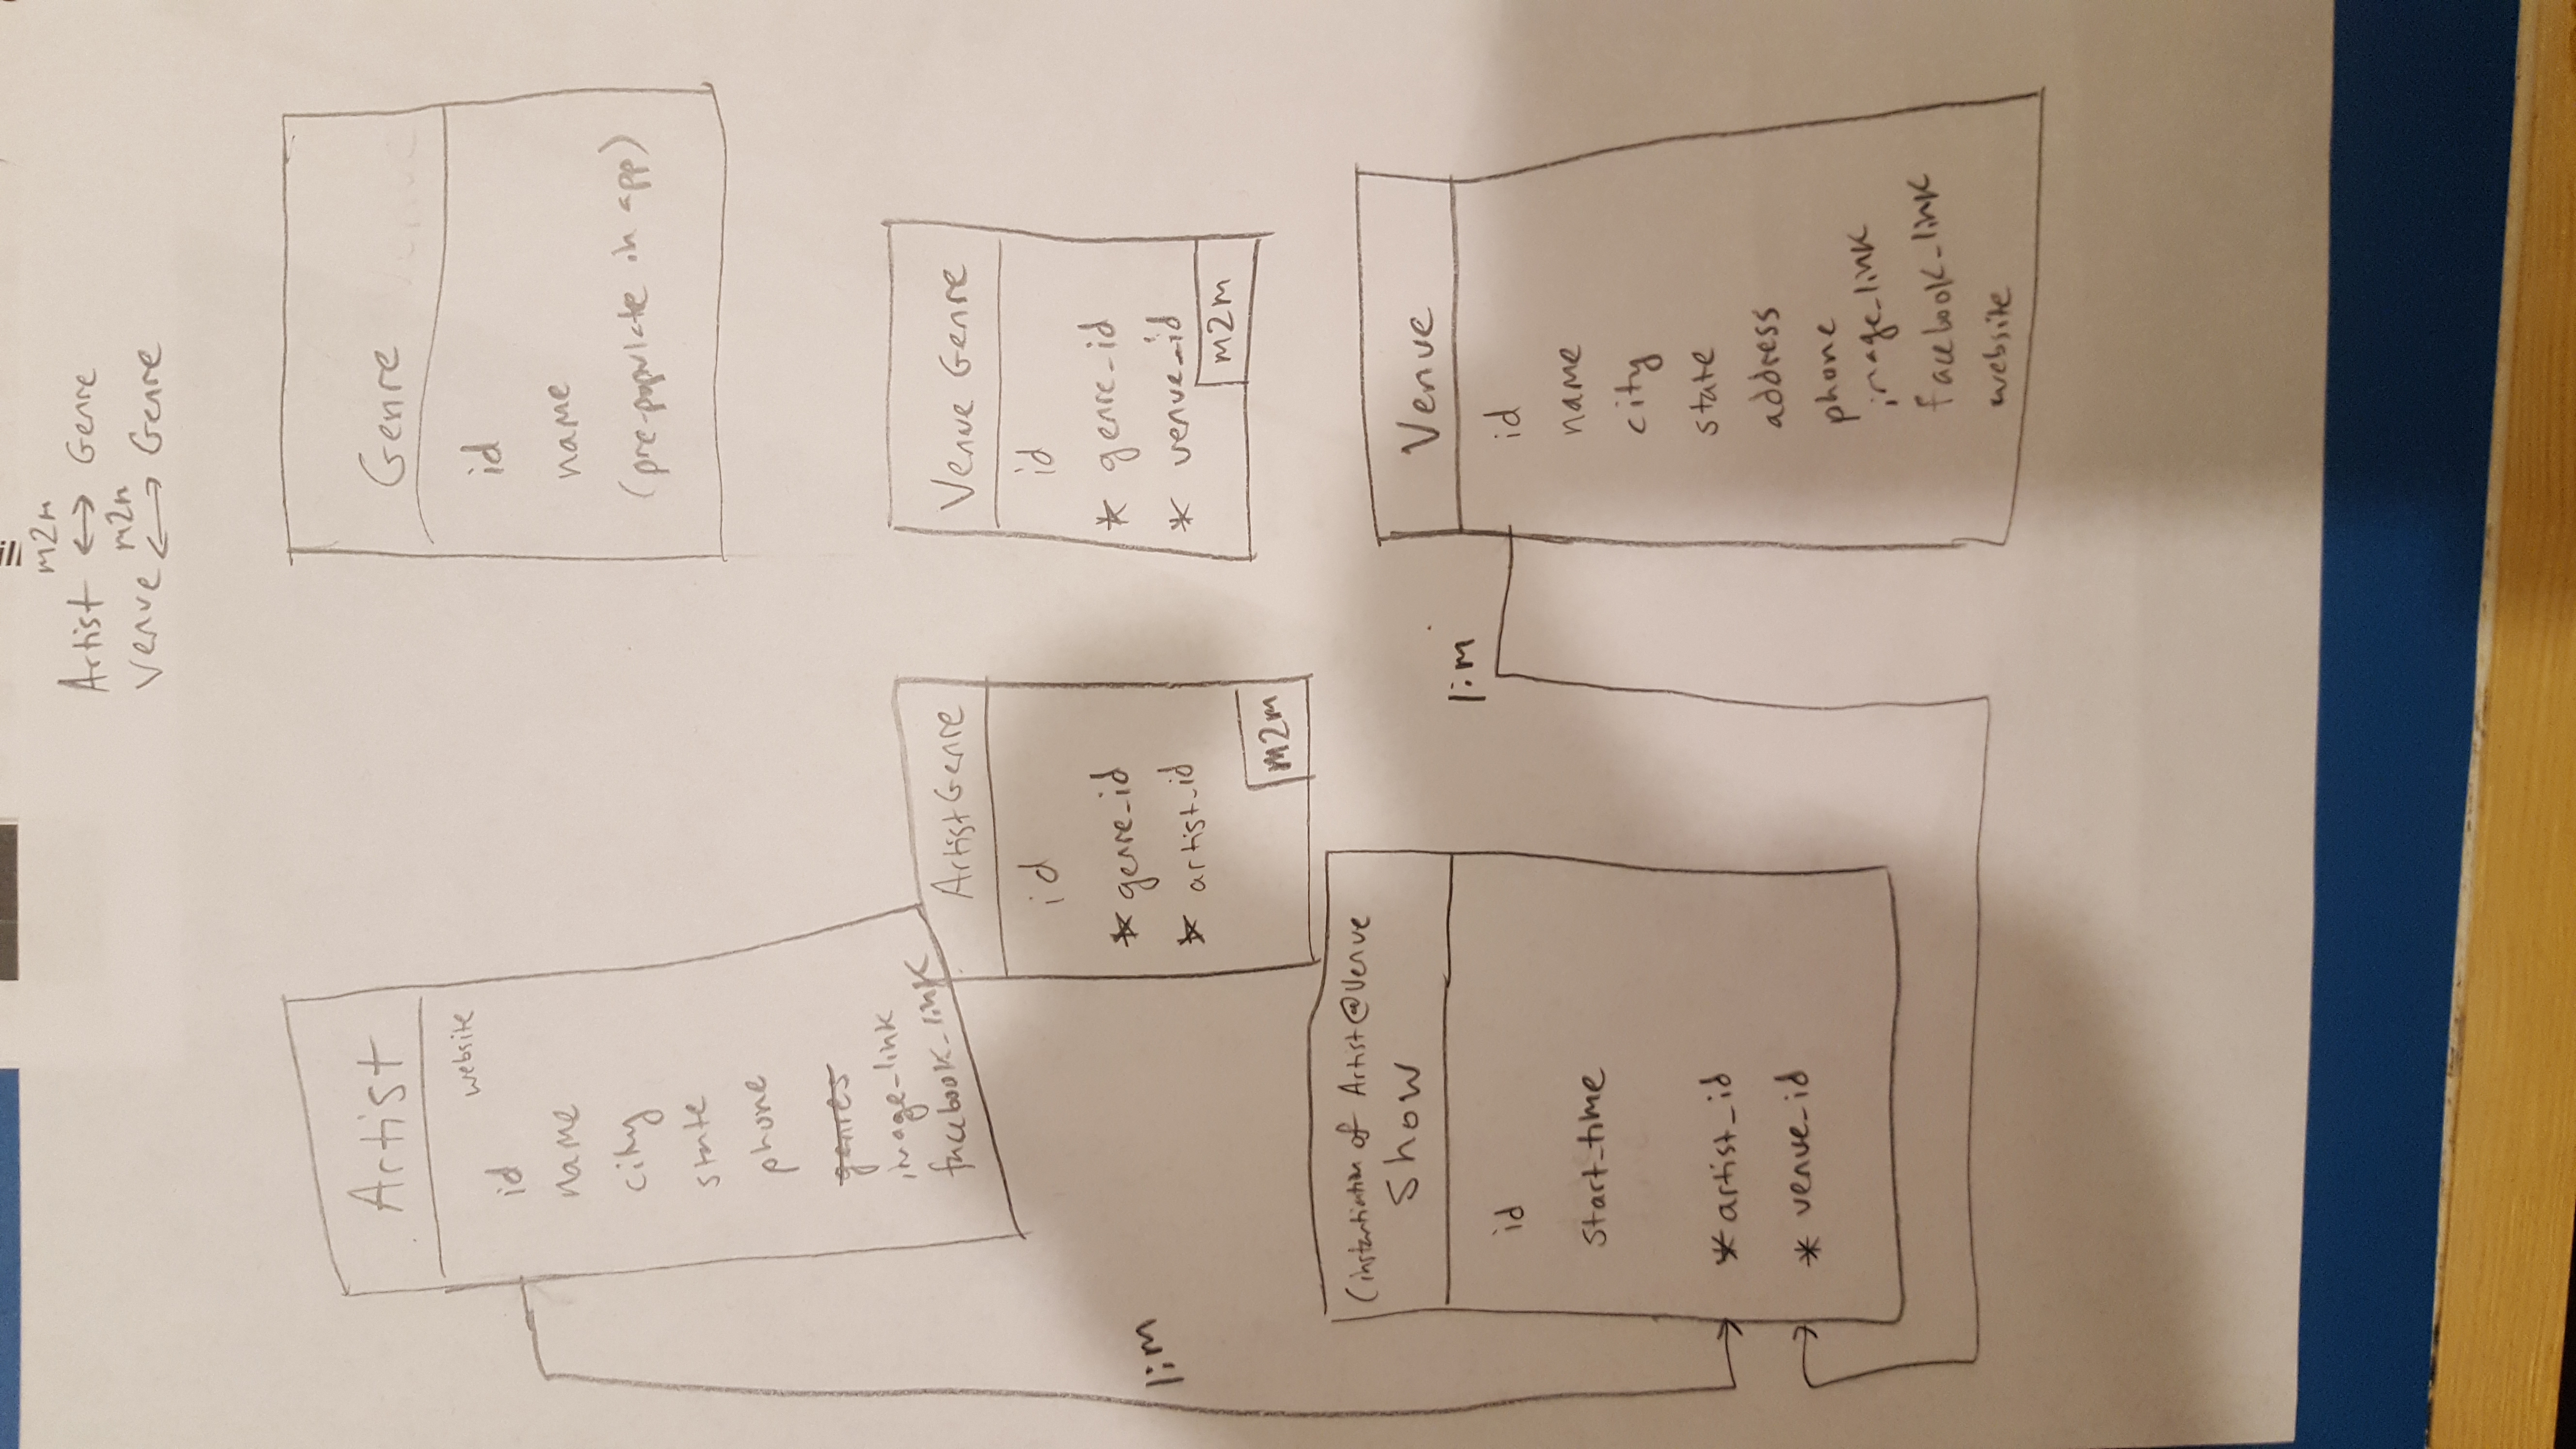 m2m
Artist ↔ Genre
m2m
Venue ↔ Genre
Artist
website
id
name
city
state
phone
genres
image_link
facebook_link
Genre
id
name
(pre-populate in app)
ArtistGenre
id
* genre_id
* artist_id
m2m
Venue Genre
id
* genre_id
* venue_id
m2m
1:m
(instantiation of Artist@Venue
Show
id
start_time
* artist_id
* venue_id
1:m
Venue
id
name
city
state
address
phone
image_link
facebook_link
website